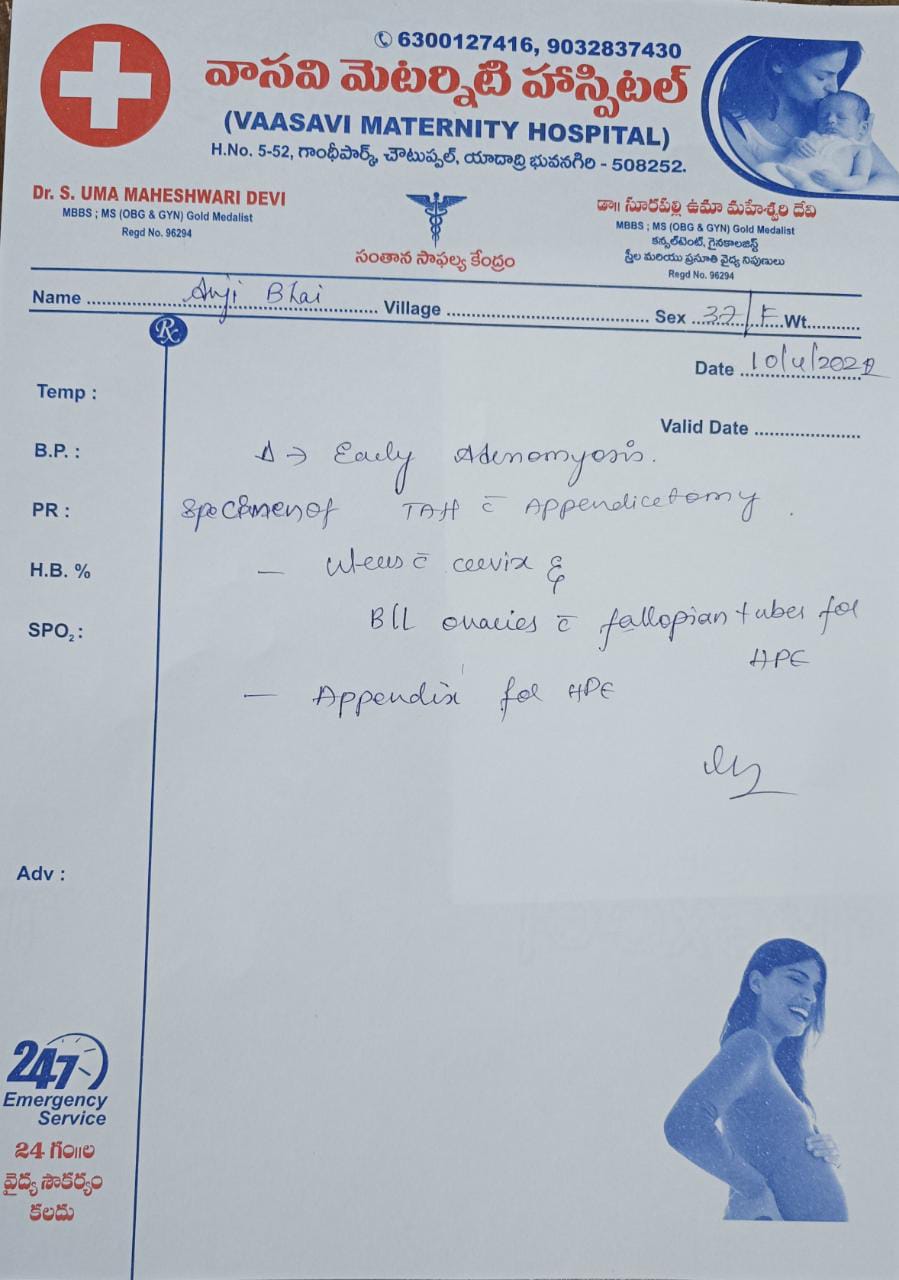 6300127416, 9032837430
వాసవి మెటర్నిటి హాస్పిటల్
(VAASAVI MATERNITY HOSPITAL)
H.No. 5-52, గాంధీపార్క్, చౌటుప్పల్, యాదాద్రి భువనగిరి - 508252.
Dr. S. UMA MAHESHWARI DEVI
MBBS ; MS (OBG & GYN) Gold Medalist
Regd No. 96294
సంతాన సాఫల్య కేంద్రం
డా॥ సూరపల్లి ఉమా మహేశ్వరి దేవి
MBBS ; MS (OBG & GYN) Gold Medalist
కన్సల్టెంట్, గైనకాలజిస్ట్
స్త్రీల మరియు ప్రసూతి వైద్య నిపుణులు
Regd No. 96294
Name Anji Bhai Village Sex 37/F Wt.
Rx
Date 10/4/202
Temp :
Valid Date
B.P. :
Δ → Early Adenomyosis.
PR :
Specimen of TAH c̄ Appendicetomy.
H.B. %
- Uterus c̄ cervix &
SPO₂ :
B/L ovaries c̄ fallopian tubes for
HPE
- Appendix for HPE
Adv :
24/7
Emergency
Service
24 గం॥ల
వైద్య సౌకర్యం
కలదు